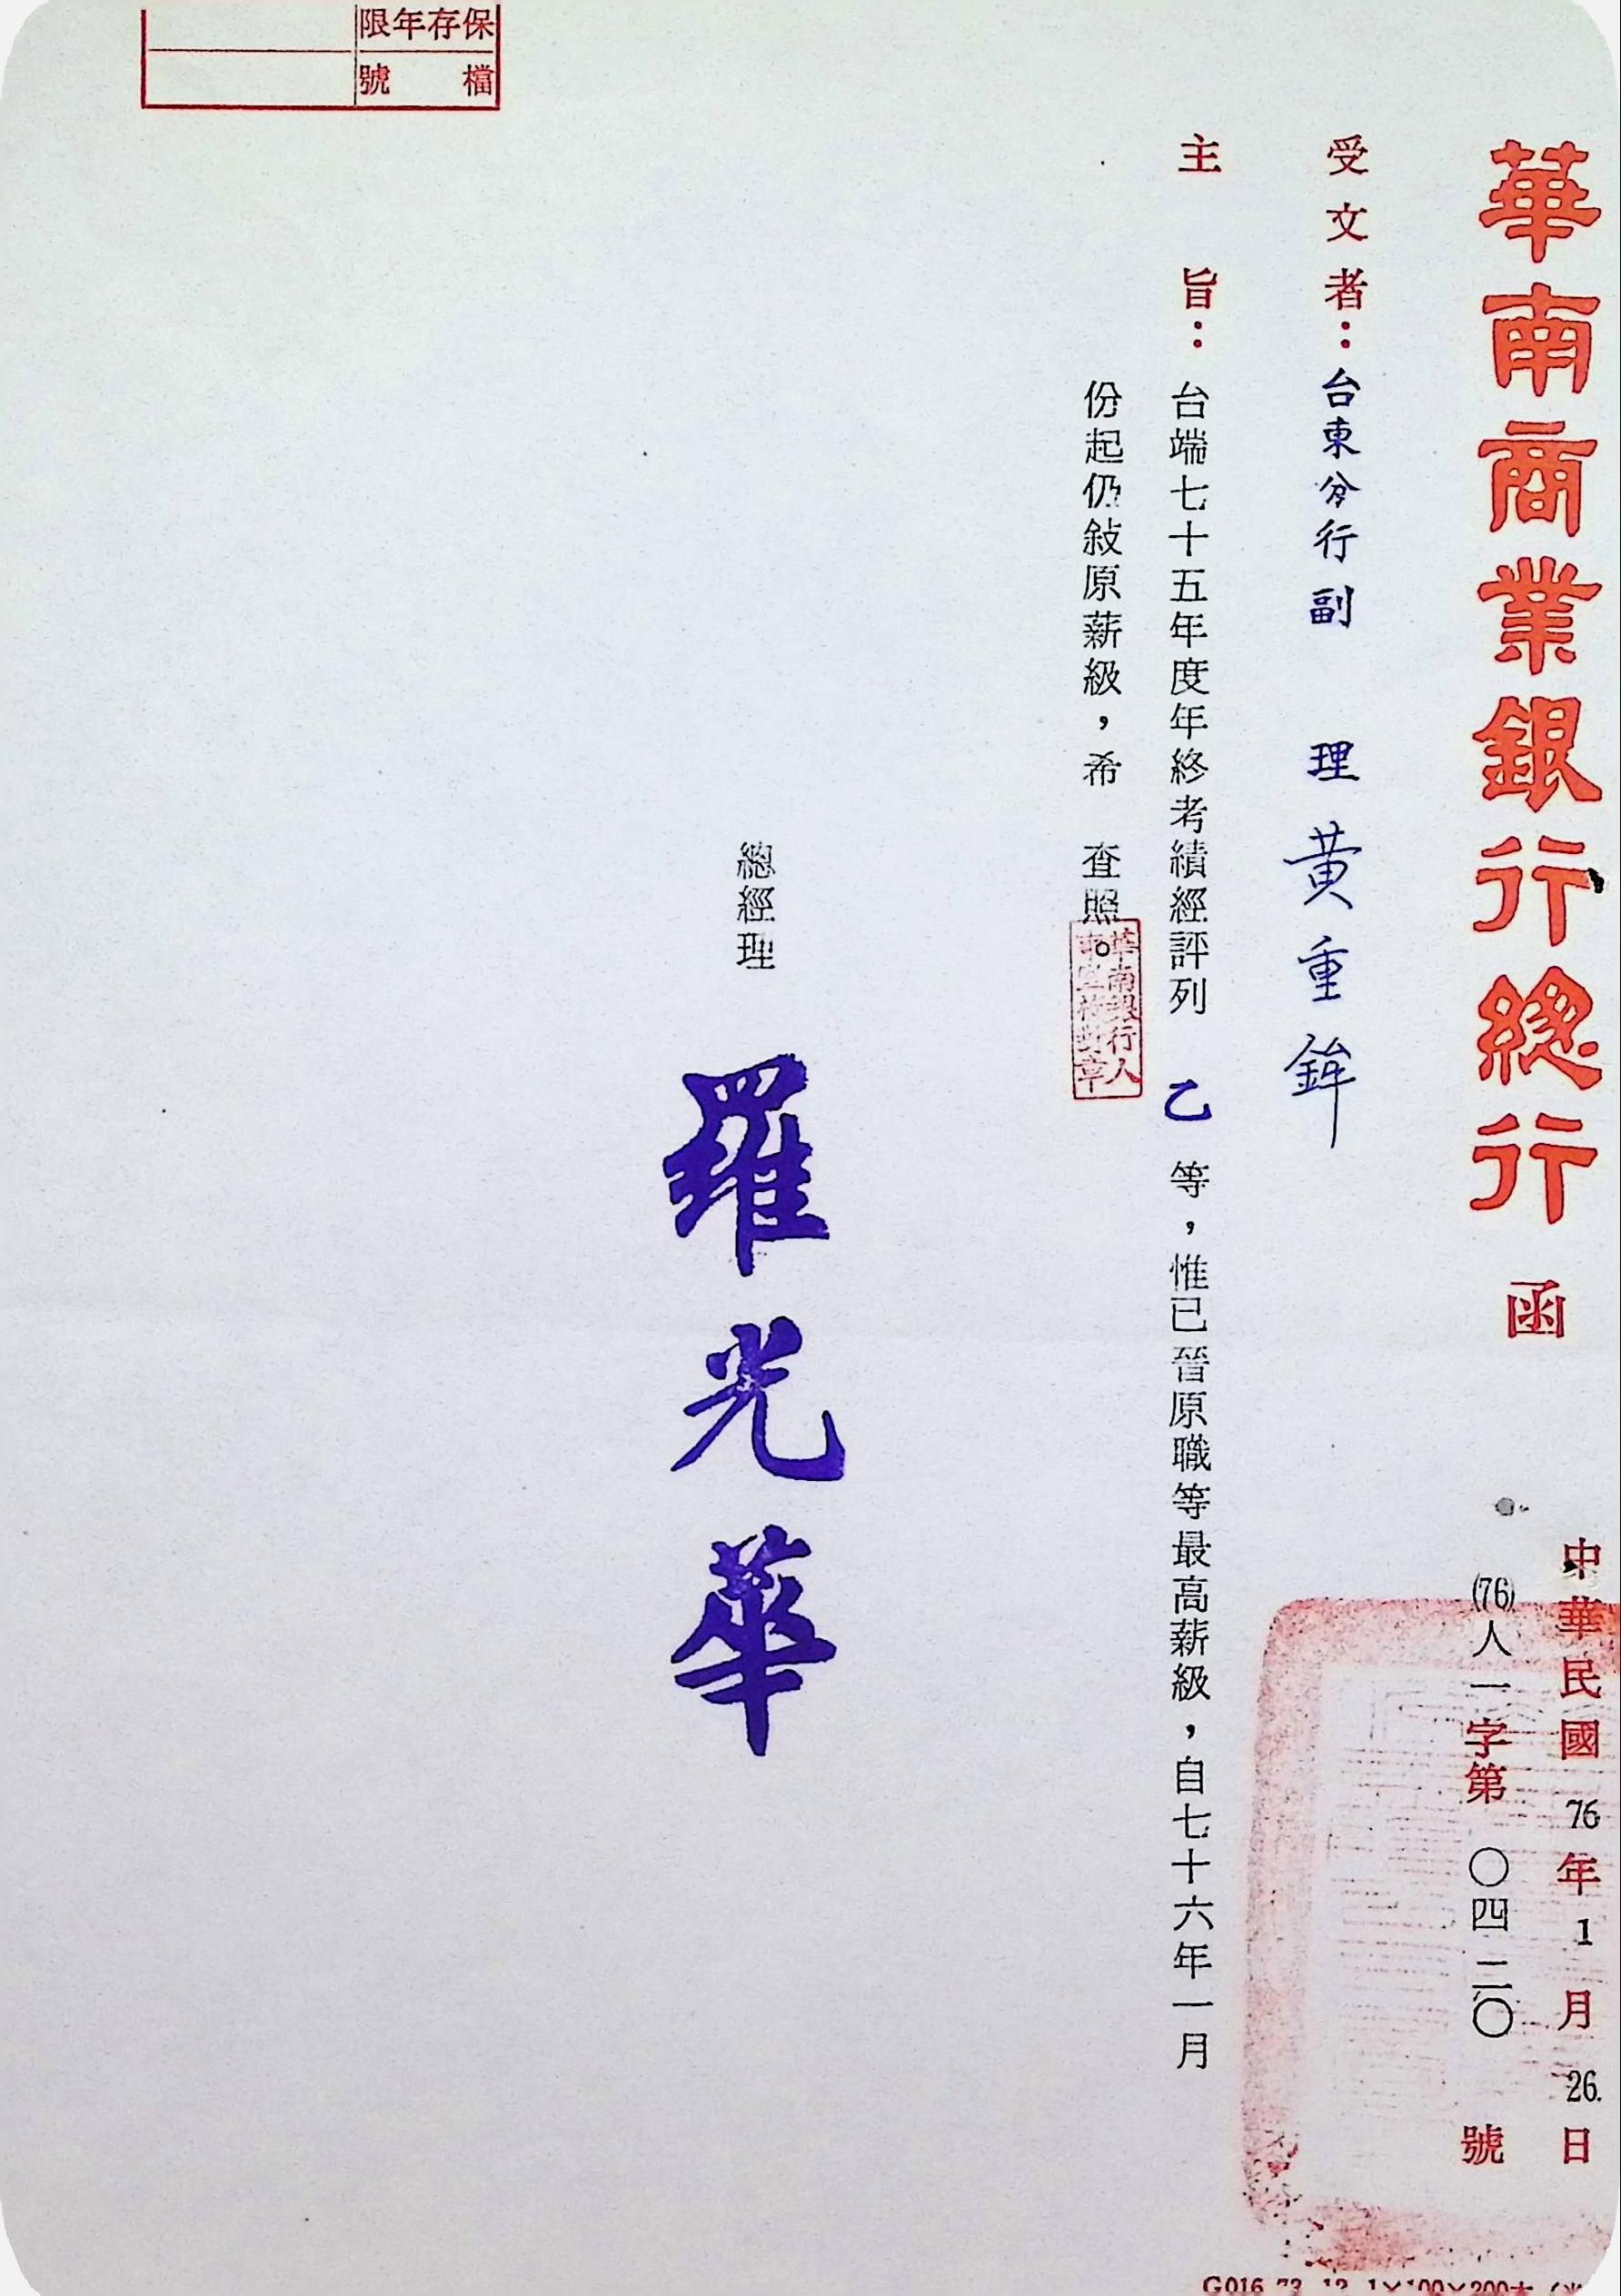 華南商業銀行總行 函
中華民國 76 年 1 月 26. 日
(76)人一字第 〇四二〇 號
受文者：台東分行副 理 黃重鉾
主 旨：台端七十五年度年終考績經評列 乙 等，惟已晉原職等最高薪級，自七十六年一月
份起仍敍原薪級，希 查照。
總經理 羅光華
保存年限
檔 號